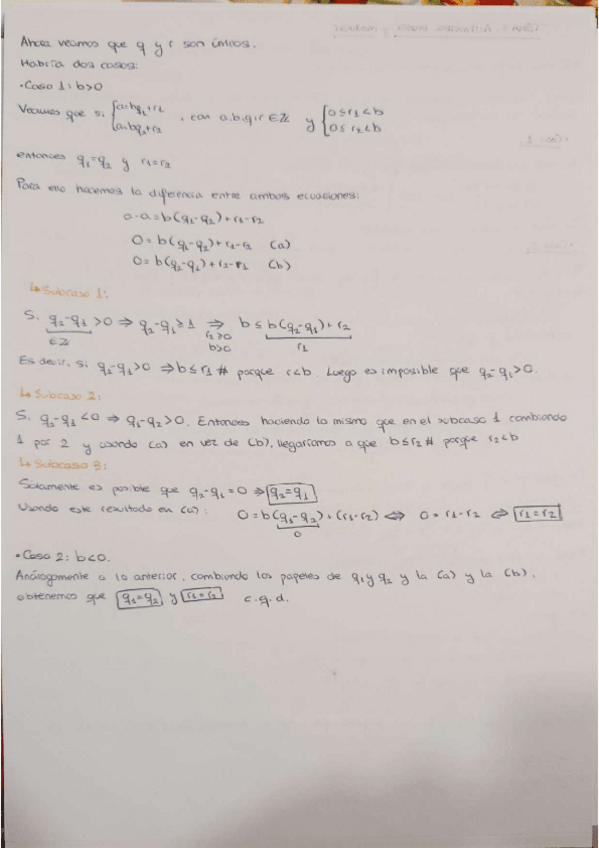 Ahora veamos que q y r son únicos.
Habría dos casos:
• Caso 1: b>0
Veamos que si { a=bq₁+r₁ , a=bq₂+r₂ , con a,b,q,r ∈ ℤ y { 0≤r₁<b , 0≤r₂<b
entonces q₁=q₂ y r₁=r₂
Para ello hacemos la diferencia entre ambas ecuaciones:
a-a=b(q₁-q₂)+r₁-r₂
0=b(q₁-q₂)+r₁-r₂ (a)
0=b(q₂-q₁)+r₂-r₁ (b)
↳ Subcaso 1:
Si q₂-q₁>0 ⇒ q₂-q₁≥1 ⇒ b≤b(q₂-q₁)+r₂
∈ℤ r₂≥0 b>0 r₁
Es decir, si q₂-q₁>0 ⇒ b≤r₁ # porque r<b. Luego es imposible que q₂-q₁>0.
↳ Subcaso 2:
Si q₂-q₁<0 ⇒ q₁-q₂>0. Entonces haciendo lo mismo que en el subcaso 1 cambiando
1 por 2 y usando (a) en vez de (b), llegaríamos a que b≤r₂ # porque r₂<b
↳ Subcaso 3:
Solamente es posible que q₂-q₁=0 ⇒ q₂=q₁
Usando este resultado en (a): 0=b(q₁-q₂)+(r₁-r₂) ⇔ 0=r₁-r₂ ⇔ r₁=r₂
0
• Caso 2: b<0.
Análogamente a lo anterior, cambiando los papeles de q₁ y q₂ y la (a) y la (b),
obtenemos que q₁=q₂ y r₁=r₂ c.q.d.